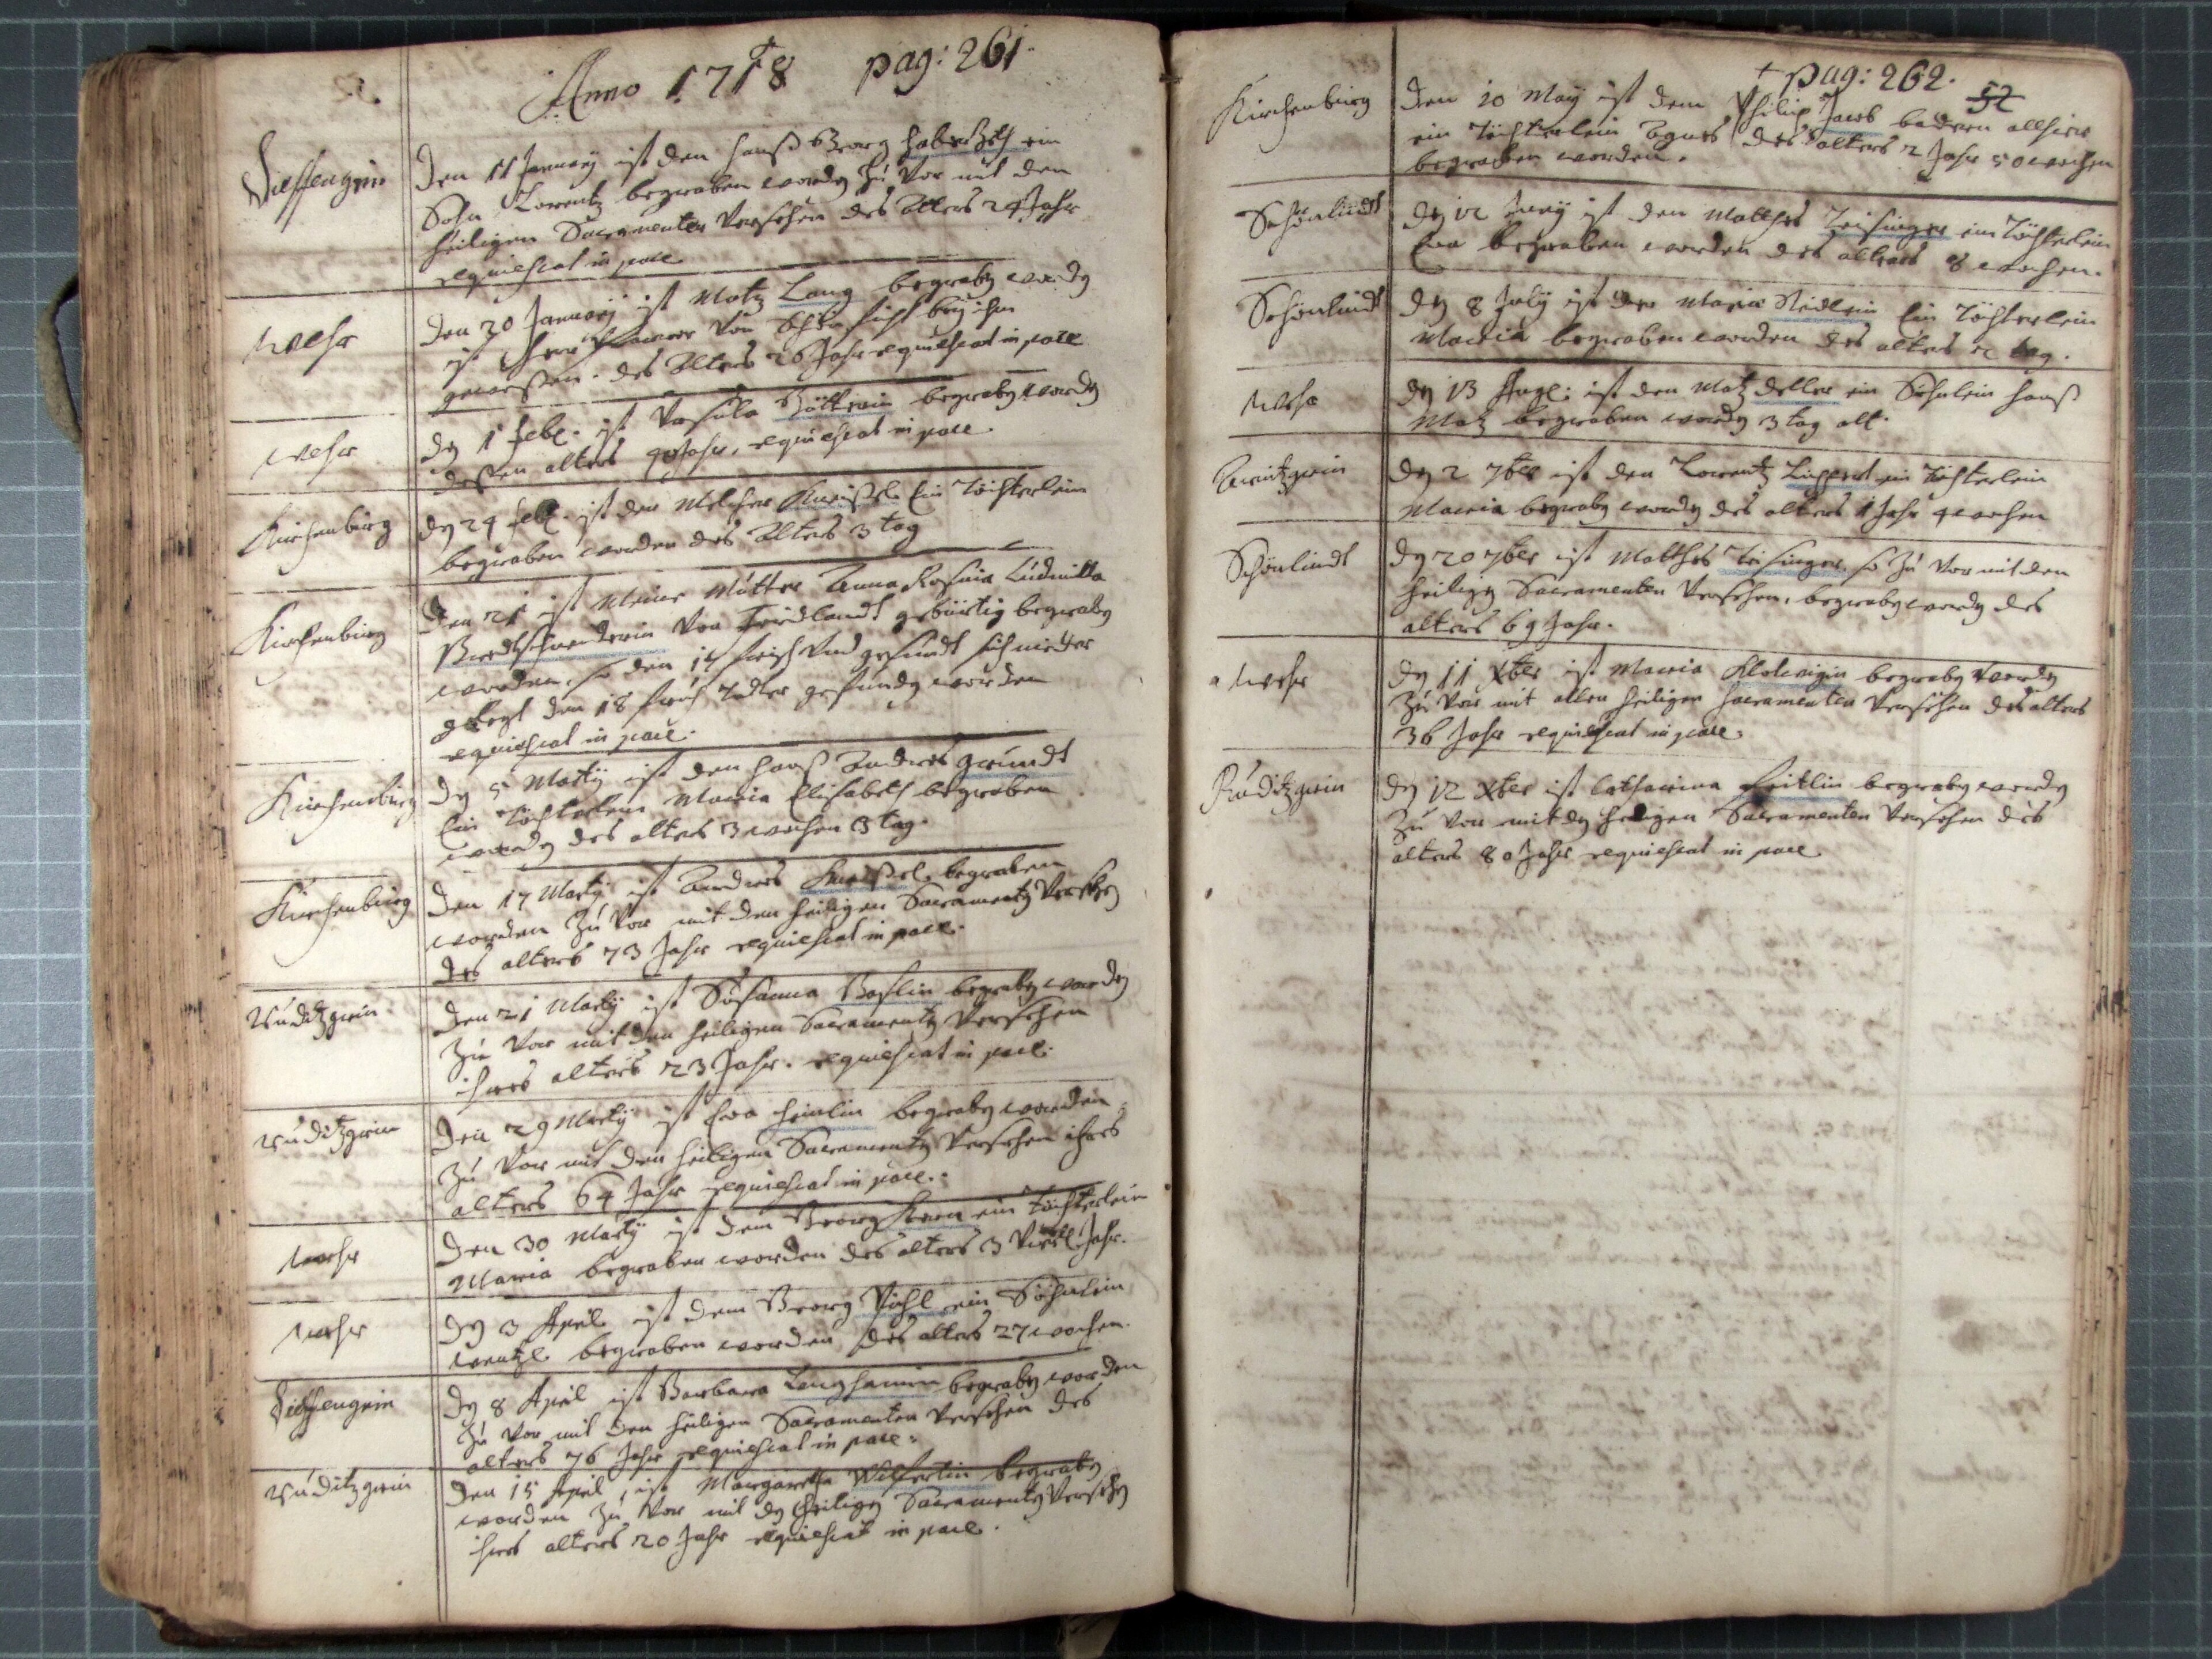 Anno 1718 pag: 261.
Tieffengrin
Den 11 January ist den Hanß Georg ein
Sohn Lorentz begraben worden zu vor mit den
heiligen Sacramenten versehen des Alters 24 Jahr
requiescat in pace
Wehr
Den 20 January ist Matz Lang begraben worden
ist Herr von bey ihm
gewessen. des Alters 26 Jahr requiescat in pace
Wehr
den 1 Feb. ist Ursula begraben worden
dessen alters Jahr, requiescat in pace.
Kirchenbirg
den 24 Feb. ist den Melcher Ein Töchterlein
begraben worden des Alters 3 tag
Kirchenbirg
Den 21 ist Meine Mutter Anna Rosina Ludmilla
von Fridlandt gebürtig begraben
worden, so den 17 frisch und gesundt sich nieder
gelegt den 18 früh Todter gefunden worden
requiescat in pace.
Kirchenbirg
den 5 Marty ist den Hanß Andres Grundt
Ein Töchterlein Maria Elisabeth begraben
worden des alters 3 wochen 3 tag.
Kirchenbirg
Den 17 Marty ist Andres begraben
worden zu vor mit den heiligen Sacramenten versehen
des alters 73 Jahr requiescat in pace.
Ruditzgrin
Den 21 Marty ist Susanna begraben worden
zu vor mit den heiligen Sacramenten versehen
ihres alters 23 Jahr. requiescat in pace.
Ruditzgrin
Den 29 Marty ist Eva Heinlin begraben worden
zu vor mit den heiligen Sacramenten versehen ihres
alters 64 Jahr requiescat in pace.
Wehr
Den 30 Marty ist dem Georg Kern ein Töchterlein
Maria begraben worden des alters 3 Viertl Jahr.
Wehr
den 3 April ist dem Georg ein Söhnlein
Wentzl begraben worden des alters 27 wochen.
Tieffengrin
den 8 April ist Barbara Langhamin begraben worden
zu vor mit den heiligen Sacramenten versehen des
alters 76 Jahr requiescat in pace.
Ruditzgrin
Den 15 April ist Margaretha Wilfertin begraben
worden zu vor mit den heiligen Sacramenten versehen
ihres alters 20 Jahr requiescat in pace.
+ pag: 262.
52
Kirchenbirg
Den 10 May ist dem Philip Jacob allhier
ein Töchterlein Agnes des alters 2 Jahr 50 wochen
begraben worden.
Schönlindt
den 12 Juny ist den Matthes Leisinger ein Töchterlein
Eva begraben worden des alters 8 wochen.
Schönlindt
den 8 July ist der Maria Neidlein Ein Töchterlein
Maria begraben worden des alters tag.
Wehr
den 13 Aug. ist den Matz Deller ein Söhnlein Hanß
Matz begraben worden 3 tag alt.
den 2 7ber ist den Lorentz ein Töchterlein
Maria begraben worden des alters 1 Jahr 4 wochen
Schönlindt
den 20 7ber ist Matthes Leisinger so zu vor mit den
heiligen Sacramenten versehen, begraben worden des
alters 69 Jahr.
Wehr
den 11 Xber ist Maria begraben worden
zu vor mit allen heiligen Sacramenten versehen des alters
36 Jahr requiescat in pace.
Ruditzgrin
den 12 Xber ist Catharina begraben worden
zu vor mit den heiligen Sacramenten versehen des
alters 80 Jahr requiescat in pace